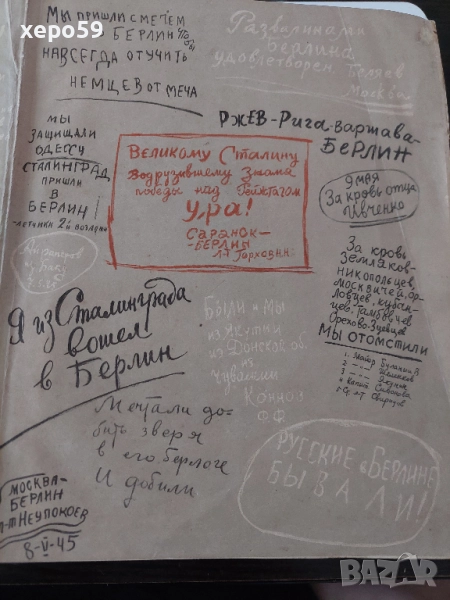 херо59
МЫ ПРИШЛИ С МЕЧЕМ
В БЕРЛИН ЧТОБЫ
НАВСЕГДА ОТУЧИТЬ
НЕМЦЕВ ОТ МЕЧА
Развалинами
Берлина
удовлетворен. Беляев
Москва
РЖЕВ-Рига-Варшава-
БЕРЛИН
МЫ
ЗАЩИЩАЛИ
ОДЕССУ
СТАЛИНГРАД
ПРИШЛИ
В
БЕРЛИН!
ЛЕТЧИКИ 2й
ВЕЛИКОМУ СТАЛИНУ
Водрузившему Знамя
победы над Рейхтагом
УРА!
САРАНСК-
-БЕРЛИН
9 МАЯ
За кровь отца
Шевченко
За кровь
земляков-
никопольцев,
москвичей, ор-
ловцев, кубан-
цев, Тамбовцев
Орехово-Зуевцев
МЫ ОТОМСТИЛИ
из Баку
Я из Сталинграда
вошел
в Берлин
Были и мы
из Якутии
из Донской об.
из
Чувашии
Мечтали до-
бить зверя
в его берлоге
И добили
РУССКИЕ в БЕРЛИНЕ
БЫВАЛИ!
МОСКВА-
БЕРЛИН
Л-т НЕУПОКОЕВ
8-V-45
BAZAR.BG